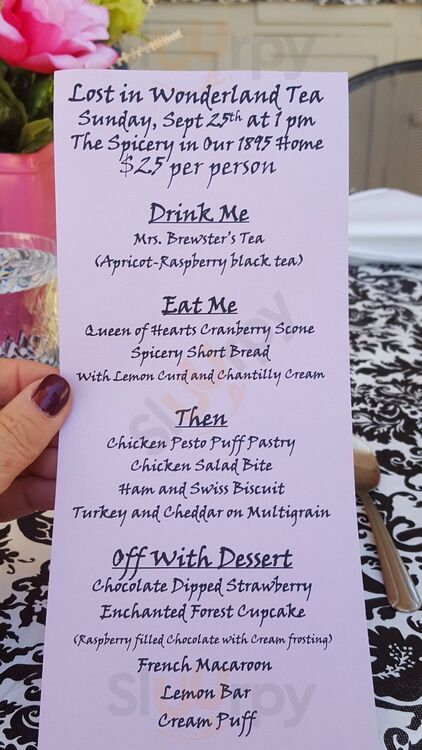 Lost in Wonderland Tea
Sunday, Sept 25th at 1 pm
The Spicery in Our 1895 Home
$25 per person
Drink Me
Mrs. Brewster's Tea
(Apricot-Raspberry black tea)
Eat Me
Queen of Hearts Cranberry Scone
Spicery Short Bread
With Lemon Curd and Chantilly Cream
Then
Chicken Pesto Puff Pastry
Chicken Salad Bite
Ham and Swiss Biscuit
Turkey and Cheddar on Multigrain
Off With Dessert
Chocolate Dipped Strawberry
Enchanted Forest Cupcake
(Raspberry filled Chocolate with Cream frosting)
French Macaroon
Lemon Bar
Cream Puff
Sluurpy
Sluurpy
Sluurpy